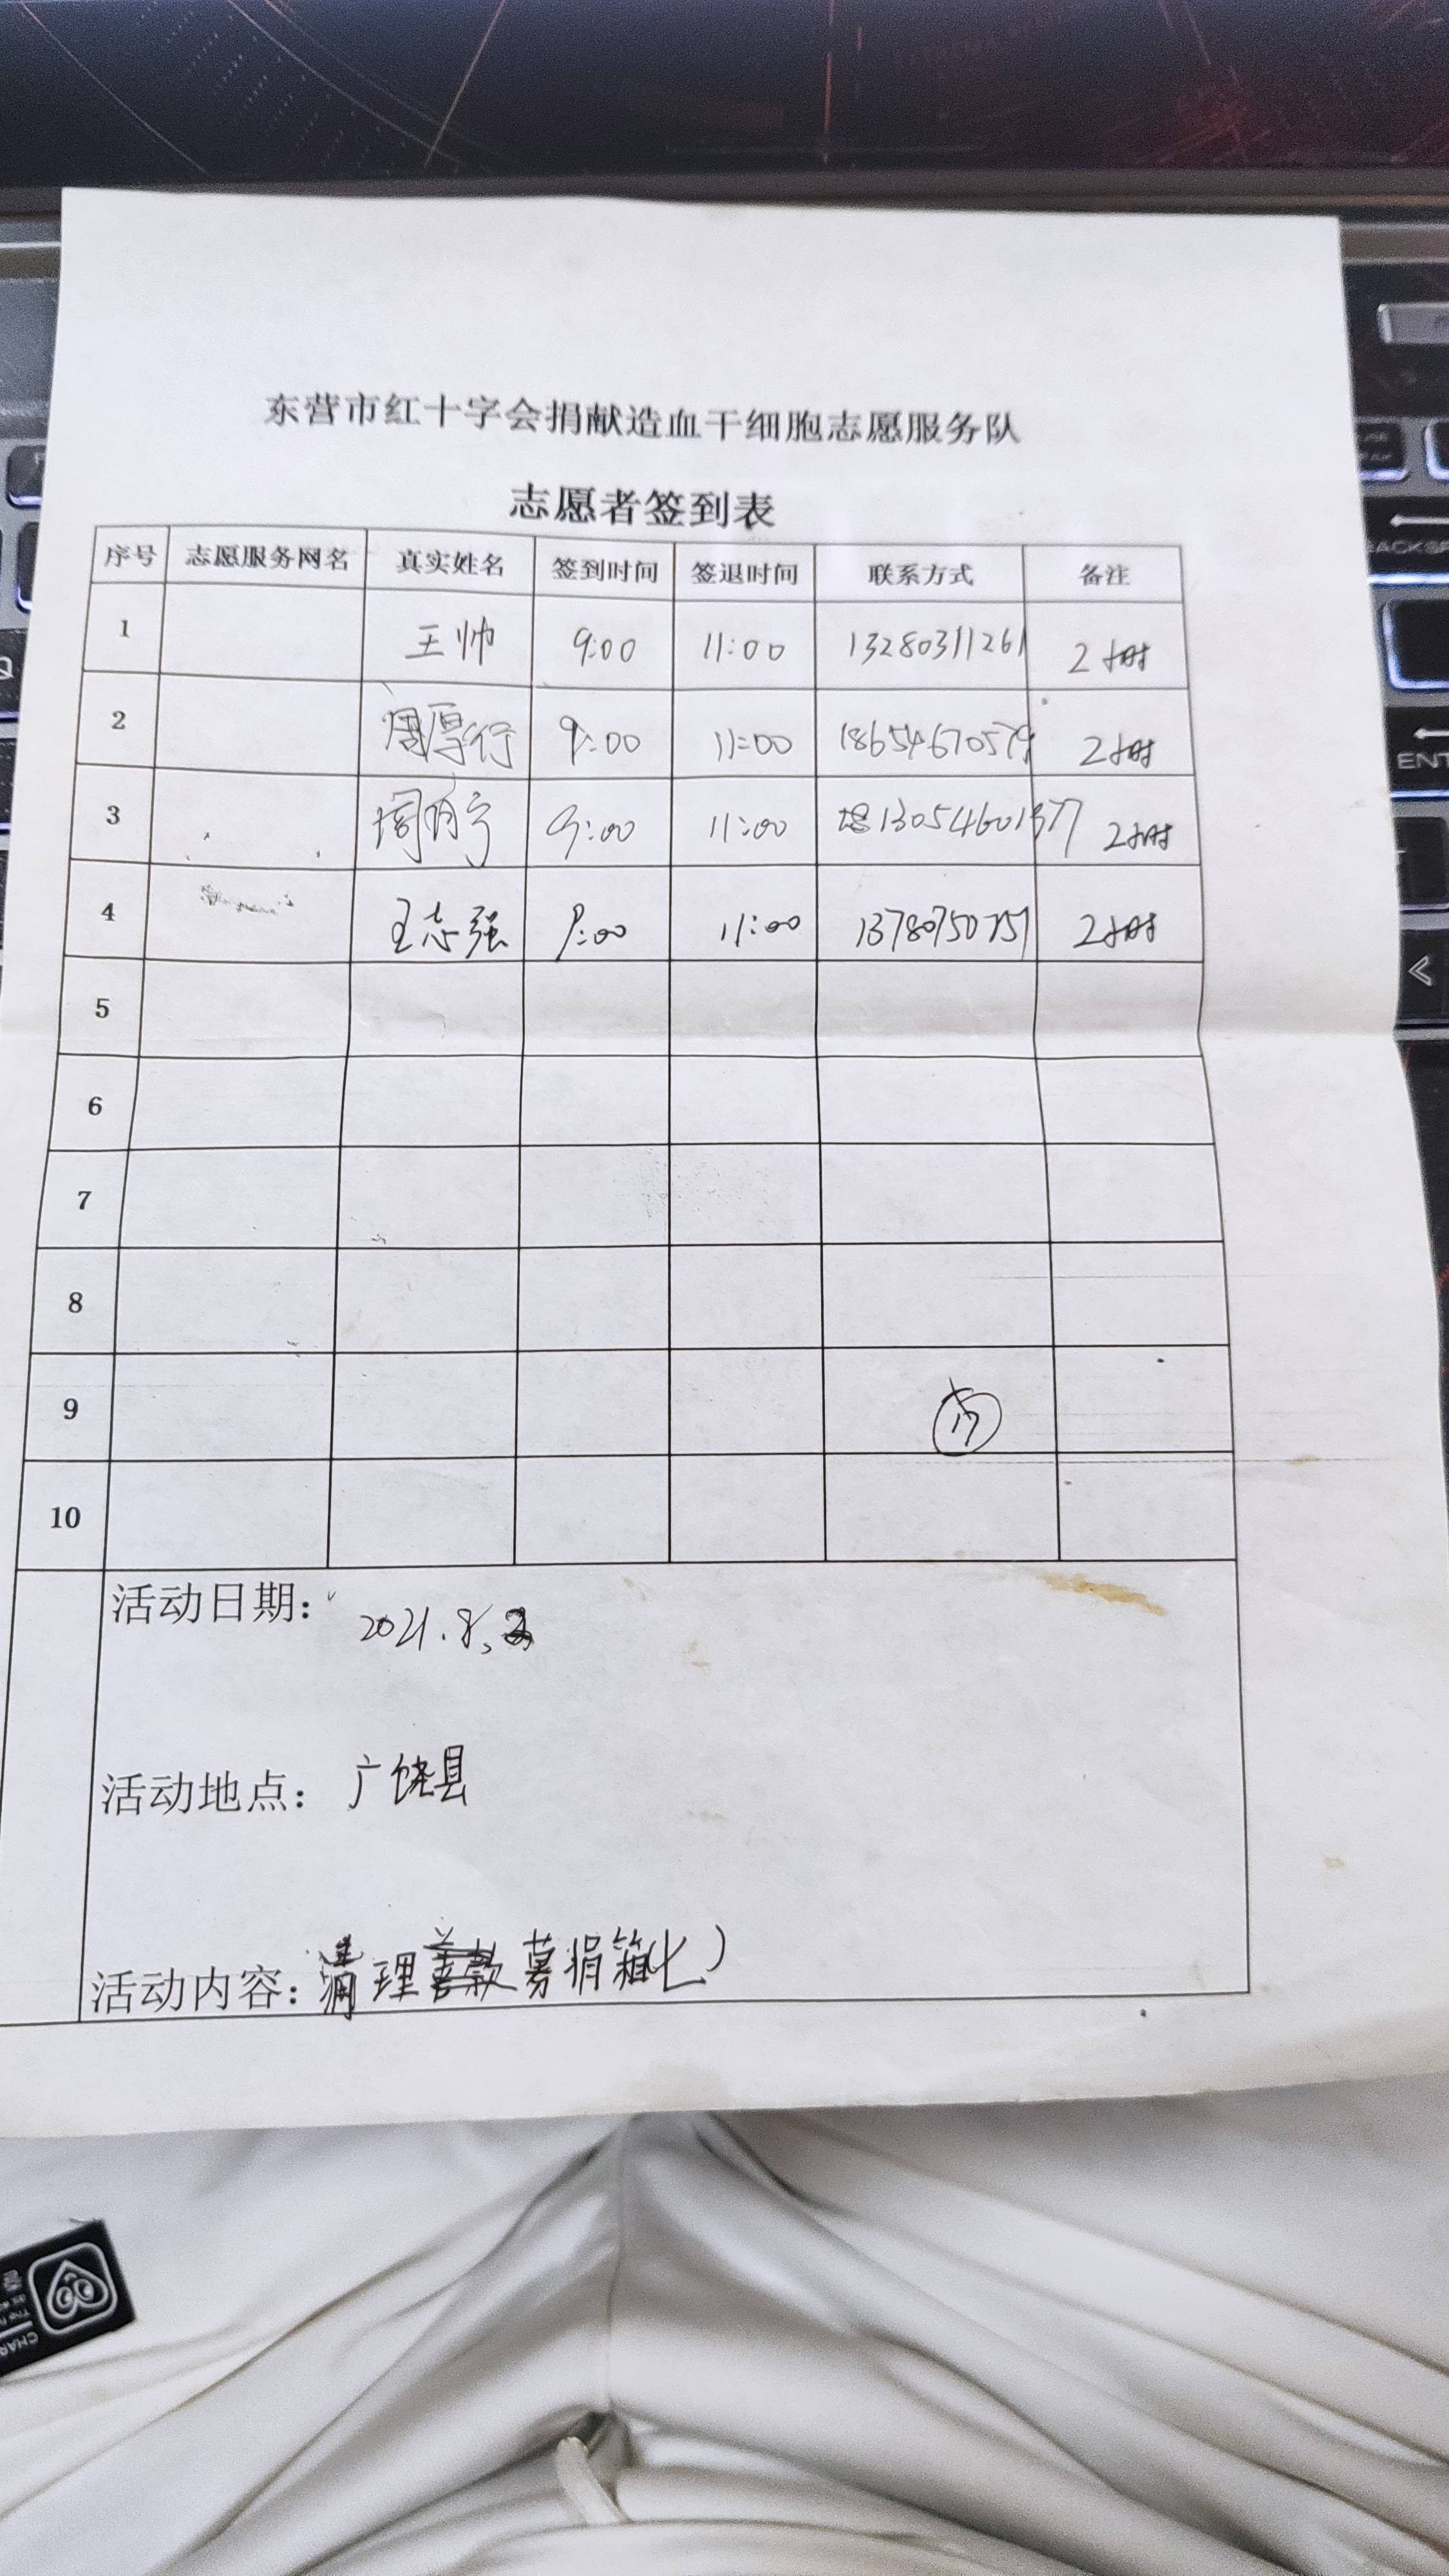 东营市红十字会捐献造血干细胞志愿服务队
志愿者签到表
序号 志愿服务网名 真实姓名 签到时间 签退时间 联系方式 备注
1 王帅 9:00 11:00 13280311261 2小时
2 周厚行 9:00 11:00 18654670579 2小时
3 9:00 11:00 13054601377 2小时
4 王志强 9:00 11:00 13780750751 2小时
5
6
7
8
9
10
活动日期: 2021.8.
活动地点: 广饶县
活动内容: 清理善款募捐箱(七)
ENT